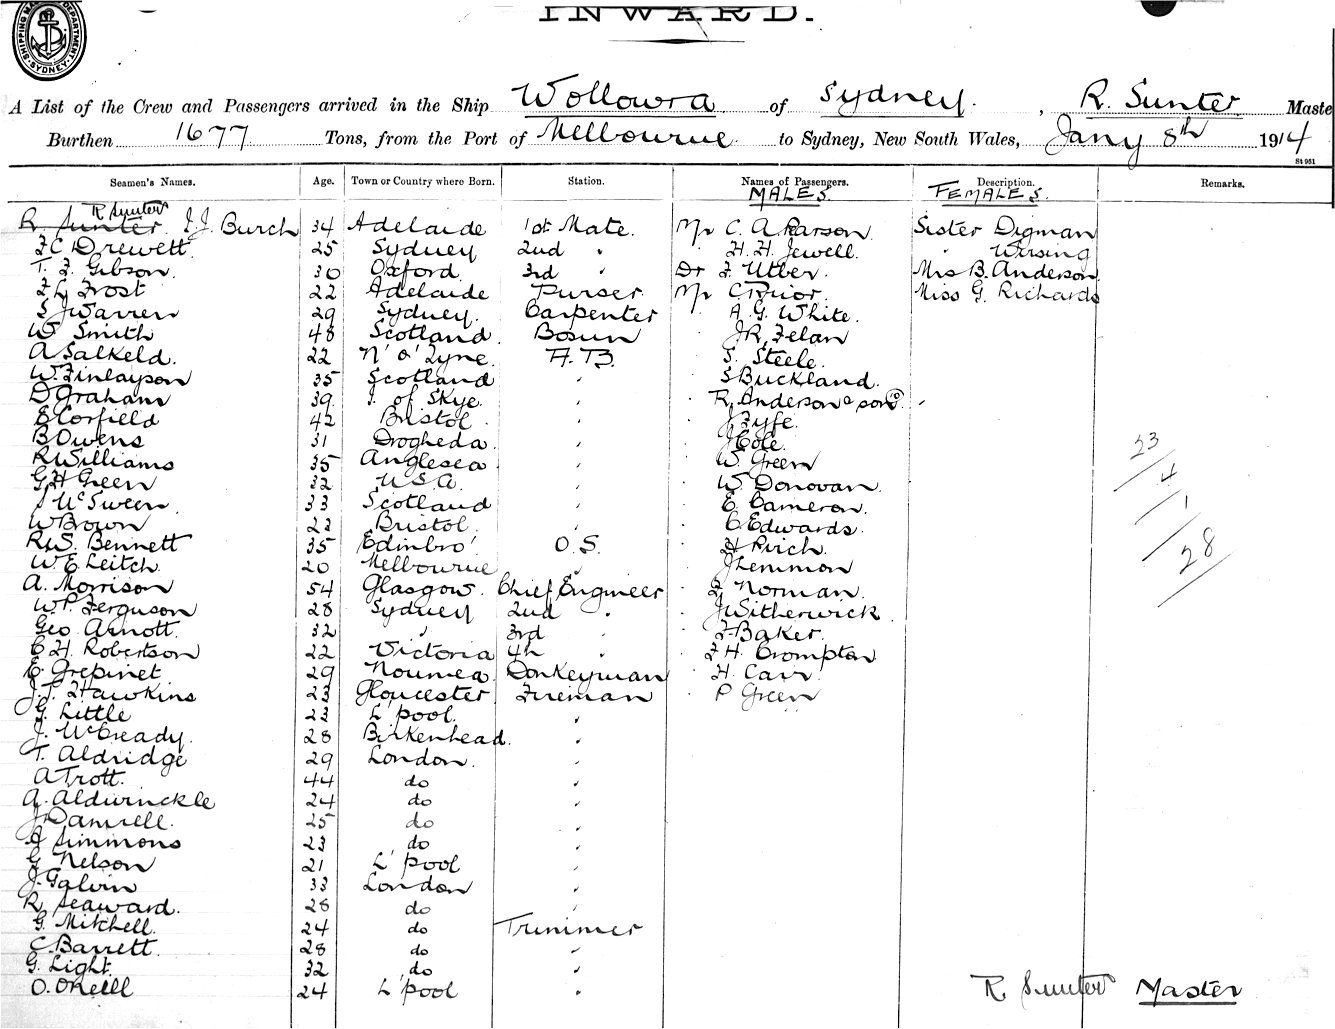 SHIPPING MASTER'S DEPARTMENT SYDNEY
INWARD.
A List of the Crew and Passengers arrived in the Ship Wollowra of Sydney. , R. Sunter Maste
Burthen 1677 Tons, from the Port of Melbourne to Sydney, New South Wales, Jany 8th 1914
St 951
Seamen's Names. Age. Town or Country where Born. Station. Names of Passengers. Description. Remarks.
MALES. FEMALES.
R Sunter
R. Sunter. J.J. Burch 34 Adelaide 1st Mate. Mr C. A. Parson Sister Digman
F C Drewett 25 Sydney 2nd " H. H. Jewell. " Wirsing
T. F. Gibson. 30 Oxford 3rd " Dr F. Utber. Mrs B. Anderson
F L Frost 22 Adelaide Purser Mr C Prior. Miss G. Richards
S J Warren 29 Sydney. Carpenter " A. G. White.
W Smith 48 Scotland Bosun J R Felan
A Salkeld. 22 N' o' Tyne. A. B. S. Steele.
W. Finlayson 35 Scotland " S Buckland.
D Graham 39 I. of Skye. " R. Anderson & son
E Corfield 42 Bristol " J Fyfe.
B Owens 31 Drogheda. " J Cole.
R Williams 35 Anglesea " W Green
G H Green 32 U S A. " W Donovan.
J McSween 33 Scotland " E Cameron.
W Brown 23 Bristol. " C Edwards.
R.W.S. Bennett 35 Edinbro' O. S. H Pirch.
W E Leitch. 20 Melbourne " J Lemmon
A. Morrison 54 Glasgow. Chief Engineer F Norman.
W P. Ferguson 28 Sydney 2nd " J Witherwick
Geo Arnott. 32 " 3rd " F Baker.
C. H. Robertson 22 Victoria 4th " F H. Crompton
E. Grepinet 29 Noumea. Donkeyman H. Carr.
J. T. Hawkins 23 Gloucester Fireman P Green
G. Little 23 L'pool. "
J. McCready. 28 Birkenhead. "
T. Aldridge 29 London. "
A Trott. 44 do "
A. Aldwinckle 24 do "
J Damrell. 25 do "
A Simmons 23 do "
G Nelson 21 L'pool "
J. Galvin 33 London "
R Seaward. 28 do "
G. Mitchell. 24 do Trimmer
C. Barrett. 28 do "
G. Light. 32 do "
O. O'Neill 24 L'pool "
23
4
1
28
R. Sunter Master